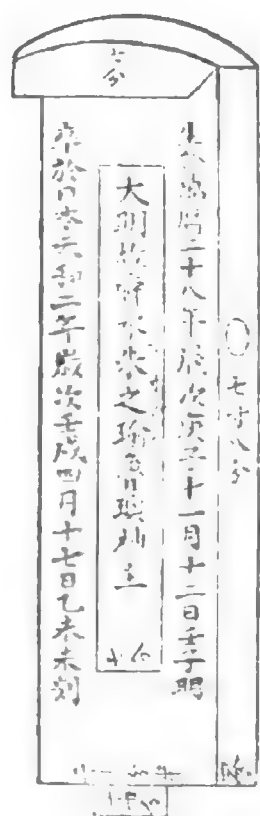 七寸八分
萬曆二十八年歲次庚子十一月十二日壬子明
大明故舜水朱之瑜魯璵神主
卒於日本天和二年歲次壬戌四月十七日乙未未刻